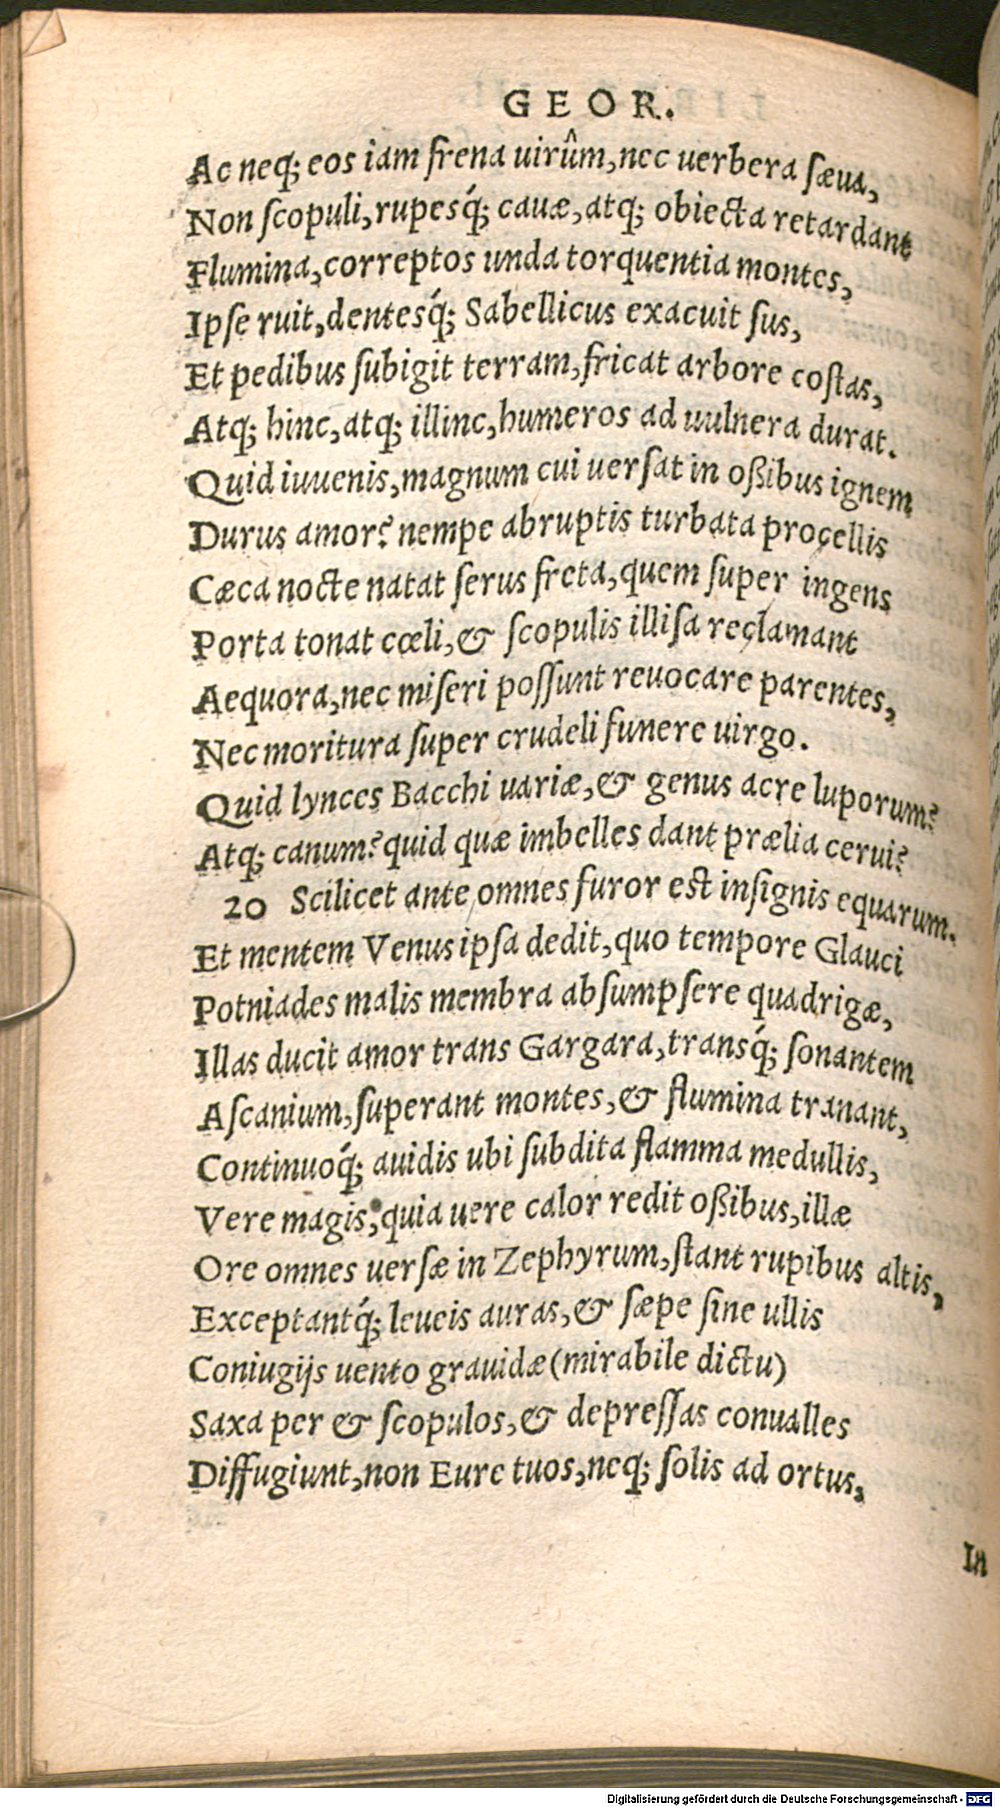 GEOR.
Ac neq; eos iam frena uirûm, nec uerbera sæua,
Non scopuli, rupesq́; cauæ, atq; obiecta retardant
Flumina, correptos unda torquentia montes,
Ipse ruit, dentesq́; Sabellicus exacuit sus,
Et pedibus subigit terram, fricat arbore costas,
Atq; hinc, atq; illinc, humeros ad uulnera durat.
Quid iuuenis, magnum cui uersat in oßibus ignem
Durus amor? nempe abruptis turbata procellis
Cæca nocte natat serus freta, quem super ingens
Porta tonat cœli, & scopulis illisa reclamant
Aequora, nec miseri possunt reuocare parentes,
Nec moritura super crudeli funere uirgo.
Quid lynces Bacchi uariæ, & genus acre luporum?
Atq; canum? quid quæ imbelles dant prælia cerui?
20 Scilicet ante omnes furor est insignis equarum.
Et mentem Venus ipsa dedit, quo tempore Glauci
Potniades malis membra absumpsere quadrigæ,
Illas ducit amor trans Gargara, transq́; sonantem
Ascanium, superant montes, & flumina tranant,
Continuoq́; auidis ubi subdita flamma medullis,
Vere magis, quia uere calor redit oßibus, illæ
Ore omnes uersæ in Zephyrum, stant rupibus altis,
Exceptantq́; leueis auras, & sæpe sine ullis
Coniugijs uento grauidæ (mirabile dictu)
Saxa per & scopulos, & depressas conualles
Diffugiunt, non Eure tuos, neq; solis ad ortus,
In
Digitalisierung gefördert durch die Deutsche Forschungsgemeinschaft - DFG